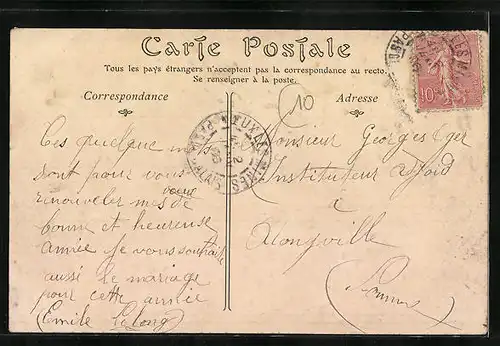 Carte Postale
Tous les pays étrangers n'acceptent pas la correspondance au recto.
Se renseigner à la poste.
Correspondance
Adresse
10
Ces quelque mots
sont pour vous
renouveler mes vœux de
bonne et heureuse
année je vous souhaite
aussi le mariage
pour cette année
(Emile Lelong)
Monsieur Georges
Instituteur adjoint
à
Longville
(Somme)
10